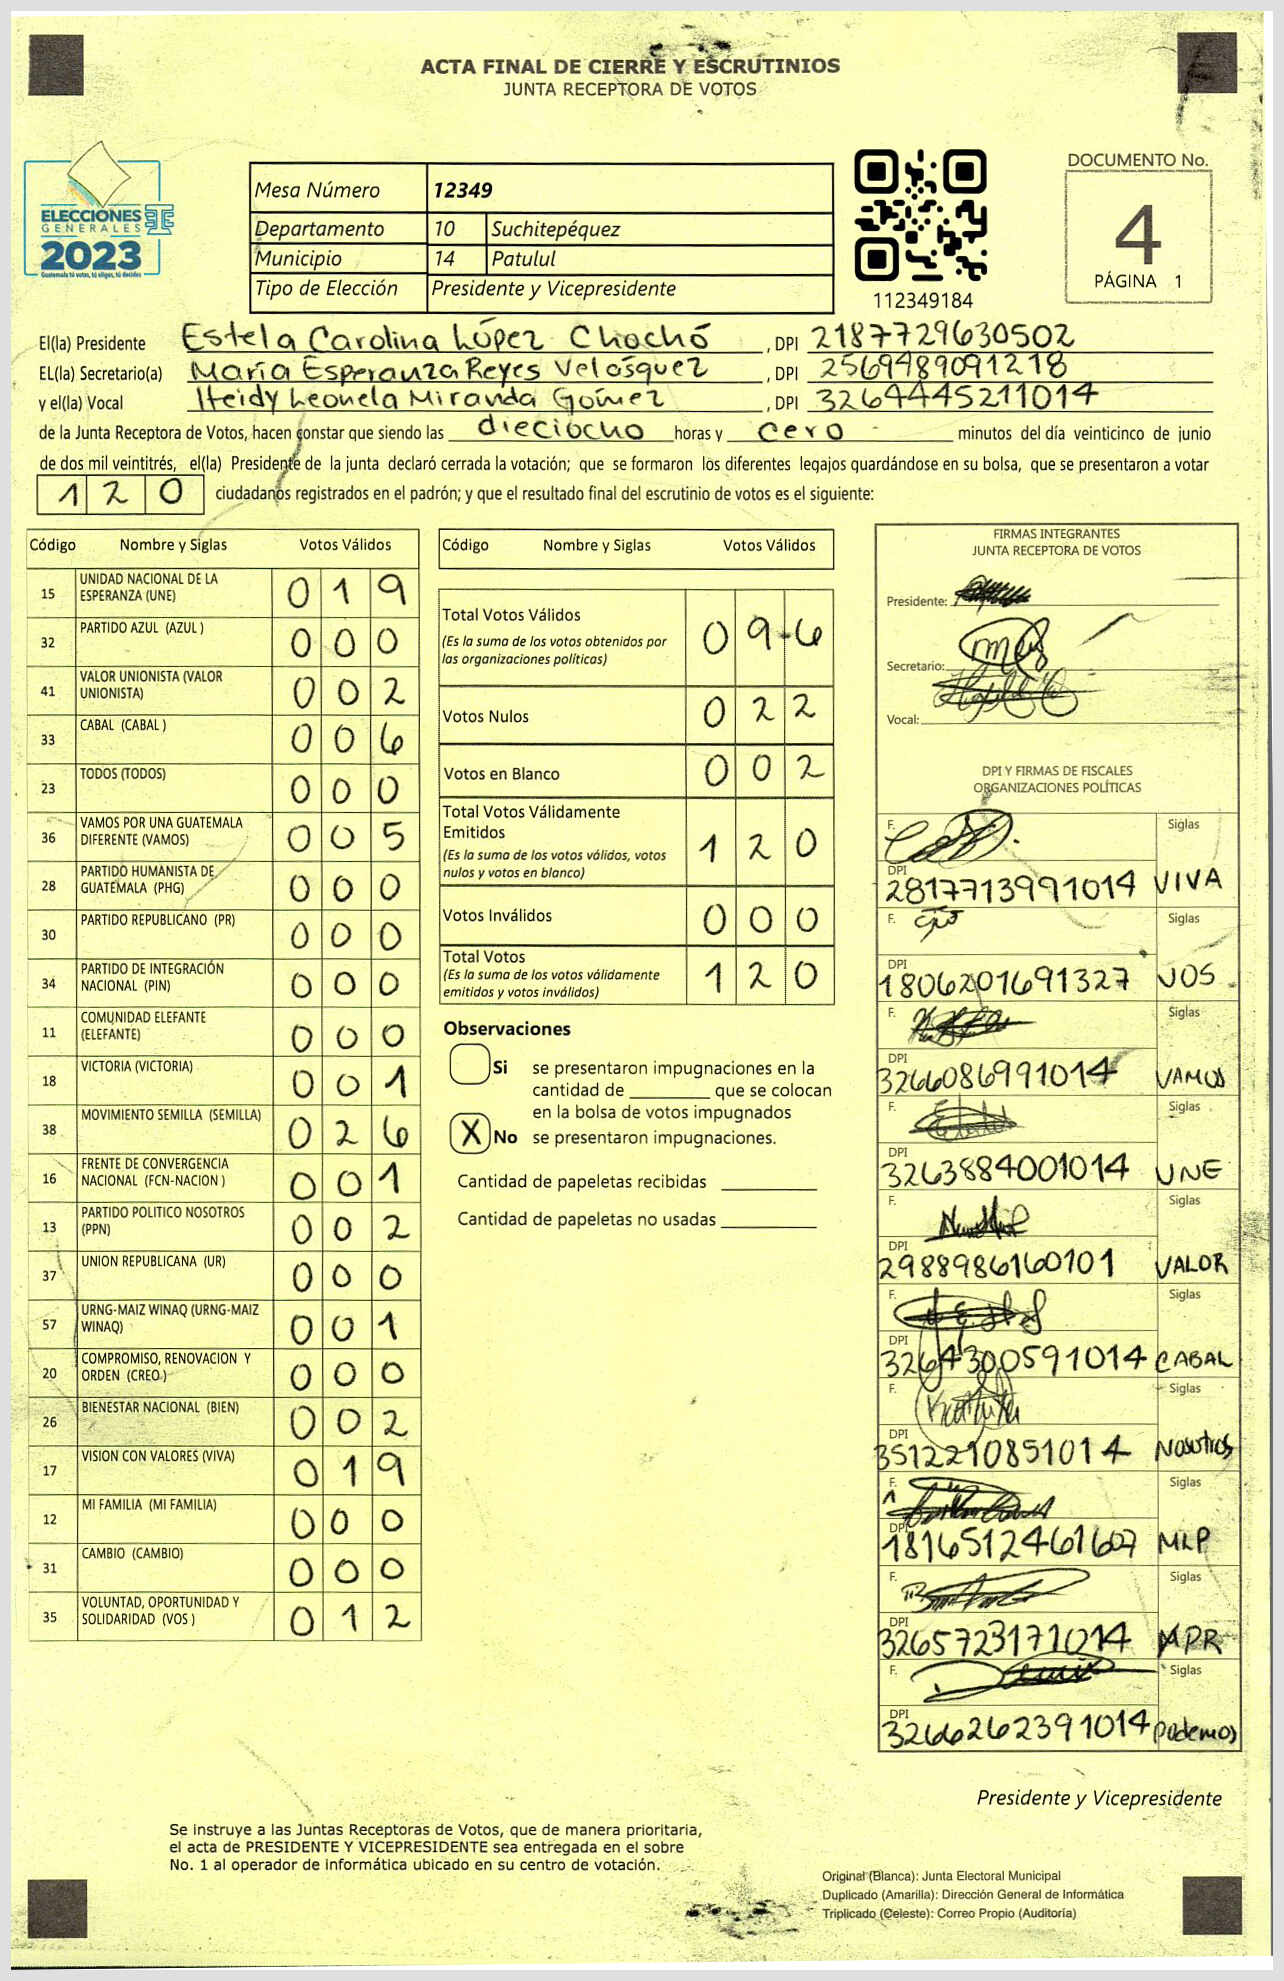 ACTA FINAL DE CIERRE Y ESCRUTINIOS
JUNTA RECEPTORA DE VOTOS
ELECCIONES
GENERALES
2023
Guatemala tú votas, tú eliges, tú decides
Mesa Número 12349
Departamento 10 Suchitepéquez
Municipio 14 Patulul
Tipo de Elección Presidente y Vicepresidente
112349184
DOCUMENTO No.
4
PÁGINA 1
El(la) Presidente Estela Carolina López Chochó, DPI 2187729630502
EL(la) Secretario(a) María Esperanza Reyes Velásquez, DPI 2569489091218
y el(la) Vocal Heidy Leonela Miranda Gómez, DPI 3264445211014
de la Junta Receptora de Votos, hacen constar que siendo las dieciocho horas y cero minutos del día veinticinco de junio
de dos mil veintitrés, el(la) Presidente de la junta declaró cerrada la votación; que se formaron los diferentes legajos guardándose en su bolsa, que se presentaron a votar
120 ciudadanos registrados en el padrón; y que el resultado final del escrutinio de votos es el siguiente:
Código Nombre y Siglas Votos Válidos
15 UNIDAD NACIONAL DE LA ESPERANZA (UNE) 019
32 PARTIDO AZUL (AZUL ) 000
41 VALOR UNIONISTA (VALOR UNIONISTA) 002
33 CABAL (CABAL ) 006
23 TODOS (TODOS) 000
36 VAMOS POR UNA GUATEMALA DIFERENTE (VAMOS) 005
28 PARTIDO HUMANISTA DE GUATEMALA (PHG) 000
30 PARTIDO REPUBLICANO (PR) 000
34 PARTIDO DE INTEGRACIÓN NACIONAL (PIN) 000
11 COMUNIDAD ELEFANTE (ELEFANTE) 000
18 VICTORIA (VICTORIA) 001
38 MOVIMIENTO SEMILLA (SEMILLA) 026
16 FRENTE DE CONVERGENCIA NACIONAL (FCN-NACION ) 001
13 PARTIDO POLITICO NOSOTROS (PPN) 002
37 UNION REPUBLICANA (UR) 000
57 URNG-MAIZ WINAQ (URNG-MAIZ WINAQ) 001
20 COMPROMISO, RENOVACION Y ORDEN (CREO ) 000
26 BIENESTAR NACIONAL (BIEN) 002
17 VISION CON VALORES (VIVA) 019
12 MI FAMILIA (MI FAMILIA) 000
31 CAMBIO (CAMBIO) 000
35 VOLUNTAD, OPORTUNIDAD Y SOLIDARIDAD (VOS ) 012
Código Nombre y Siglas Votos Válidos
Total Votos Válidos 096
(Es la suma de los votos obtenidos por
las organizaciones políticas)
Votos Nulos 022
Votos en Blanco 002
Total Votos Válidamente
Emitidos 120
(Es la suma de los votos válidos, votos
nulos y votos en blanco)
Votos Inválidos 000
Total Votos 120
(Es la suma de los votos válidamente
emitidos y votos inválidos)
Observaciones
Si se presentaron impugnaciones en la
cantidad de ________ que se colocan
en la bolsa de votos impugnados
X No se presentaron impugnaciones.
Cantidad de papeletas recibidas
Cantidad de papeletas no usadas
FIRMAS INTEGRANTES
JUNTA RECEPTORA DE VOTOS
Presidente:
Secretario:
Vocal:
DPI Y FIRMAS DE FISCALES
ORGANIZACIONES POLÍTICAS
F. Siglas
DPI
2817713991014 VIVA
F. Siglas
DPI
1806201691327 VOS
F. Siglas
DPI
3266086991014 VAMOS
F. Siglas
DPI
3263884001014 UNE
F. Siglas
DPI
2988986160101 VALOR
F. Siglas
DPI
3264300591014 CABAL
F. Siglas
DPI
3512210851014 Nosotros
F. Siglas
DPI
1816512461607 MLP
F. Siglas
DPI
3265723171014 MPR
F. Siglas
DPI
3266262391014 Podemos
Presidente y Vicepresidente
Se instruye a las Juntas Receptoras de Votos, que de manera prioritaria,
el acta de PRESIDENTE Y VICEPRESIDENTE sea entregada en el sobre
No. 1 al operador de informática ubicado en su centro de votación.
Original (Blanca): Junta Electoral Municipal
Duplicado (Amarilla): Dirección General de Informática
Triplicado (Celeste): Correo Propio (Auditoría)